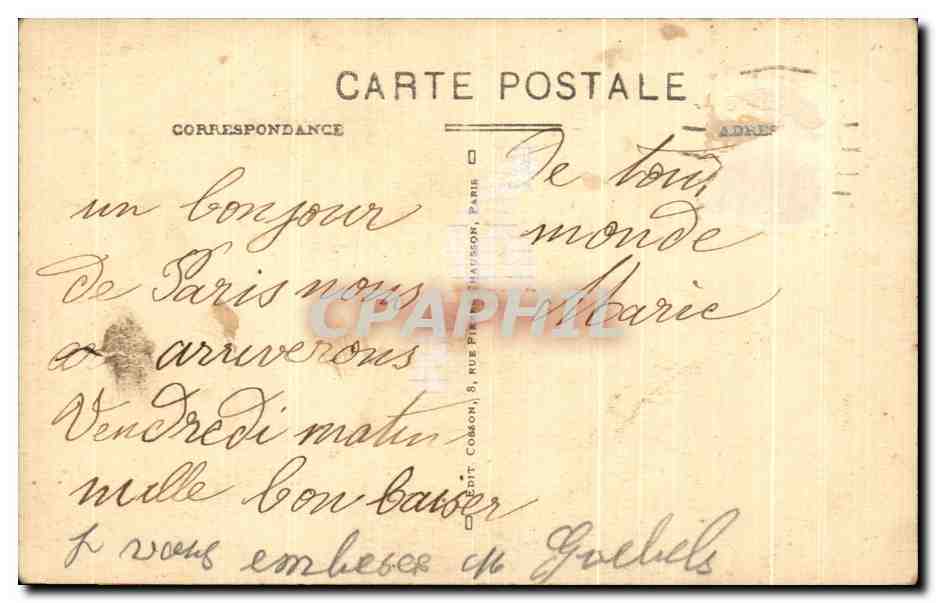 CARTE POSTALE
CORRESPONDANCE
ADRES
un bonjour
de Paris nous
arriverons
Vendredi matin
mille bon baiser
de tout
monde
Marie
vous embeses
EDIT COSSON, 8, RUE PI CHAUSSON, PARIS
CPAPHIL